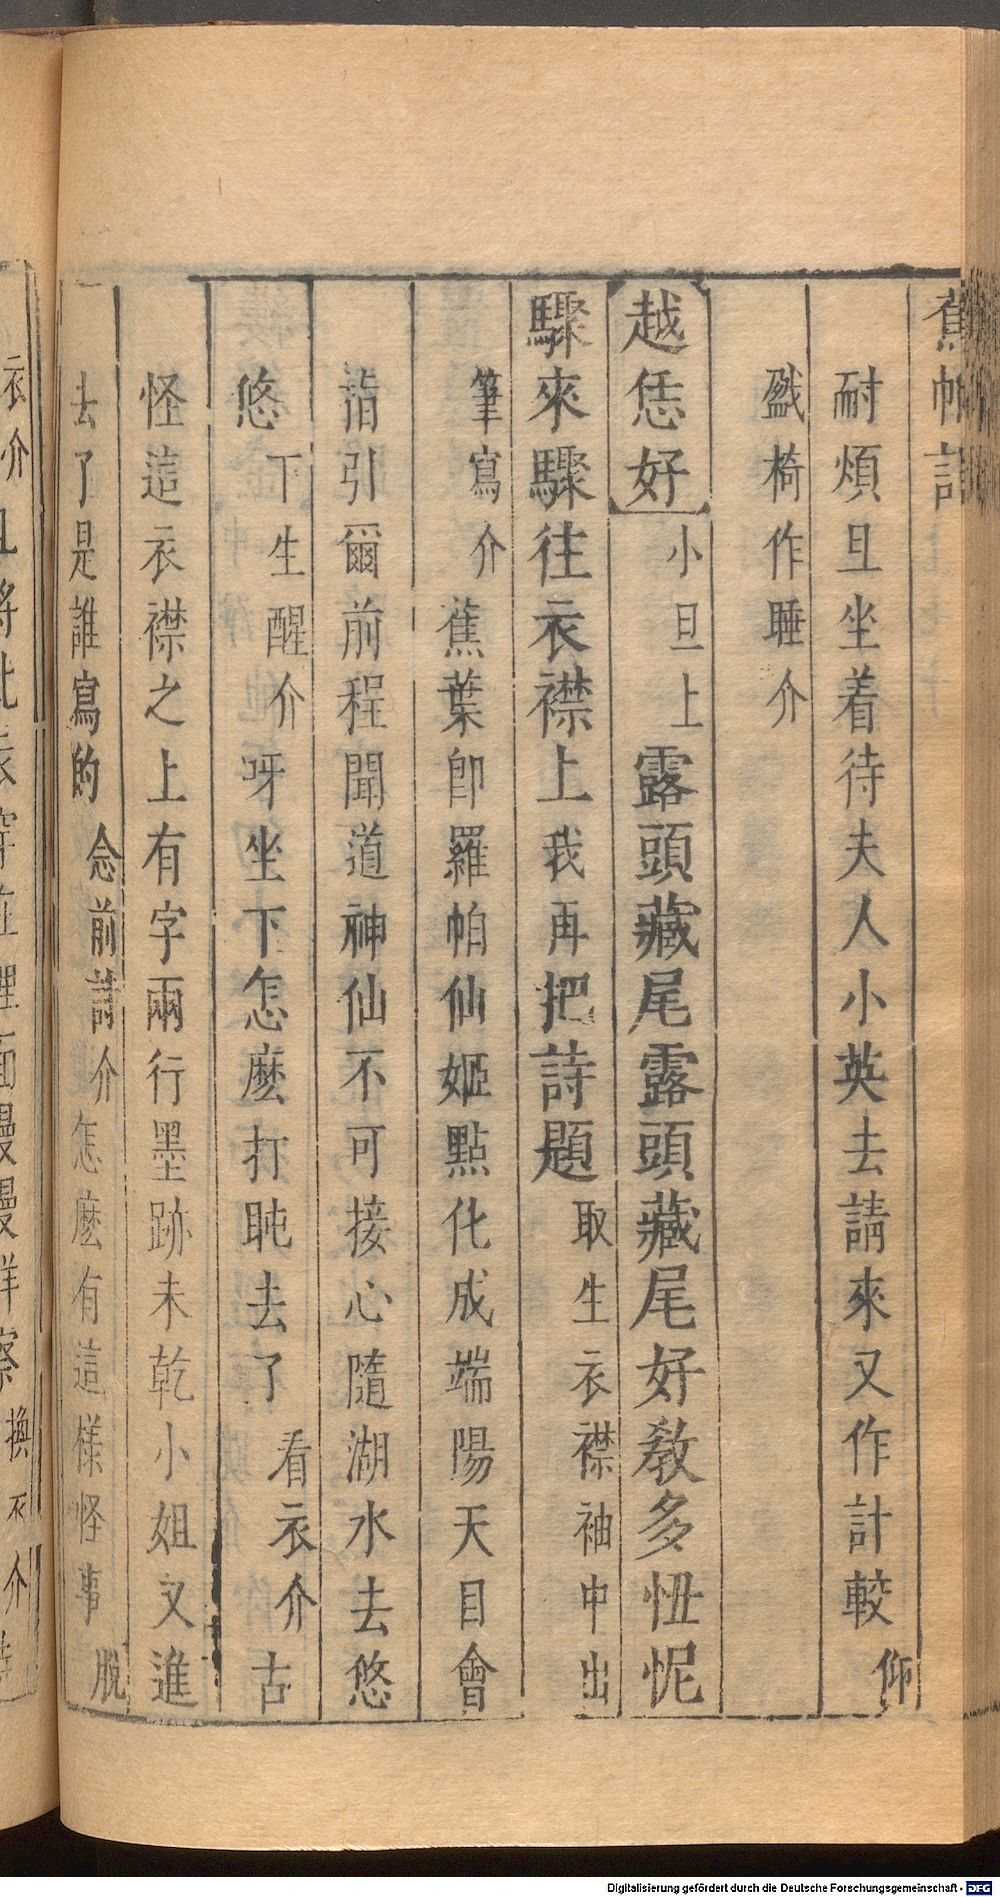 蕉帕記
耐煩且坐着待夫人小英去請來又作計較仰
盹椅作睡介
越恁好小旦上露頭藏尾露頭藏尾好教多忸怩
驟來驟往衣襟上我再把詩題取生衣襟袖中出
筆寫介蕉葉卽羅帕仙姬點化成端陽天目會
指引爾前程聞道神仙不可接心隨湖水去悠
悠下生醒介呀坐下怎麽打盹去了看衣介古
怪這衣襟之上有字兩行墨跡未乾小姐又進
去了是誰寫的念前詩介怎麽有這樣怪事脫
衣介且將此衣穿在裡面慢慢詳察換衣介
Digitalisierung gefördert durch die Deutsche Forschungsgemeinschaft - DFG